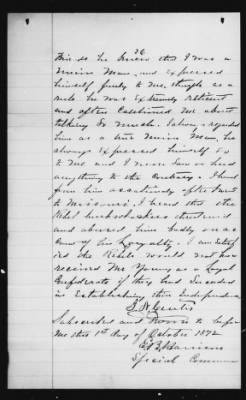 26
friends he knew that I was a
Union Man, and expressed
himself freely to me, though as a
rule he was extremely reticent
and often cautioned me about
talking so much. I always regarded
him as a true Union Man, he
always expressed himself so
to me and I never saw or heard
anything to the contrary. I heard
from him assertively after he went
to Missouri, I heard that the
Rebel bushwhackers threatened
and abused him badly on ac
count of his Loyalty. I am satisf
ied the Rebels would not have
received Mr Young as a Loyal
Confederate if they had succeeded
in Establishing their Independence
J. N. Curtis
Subscribed and sworn to before
me this 1st day of October 1872
Harrison
Special Commr